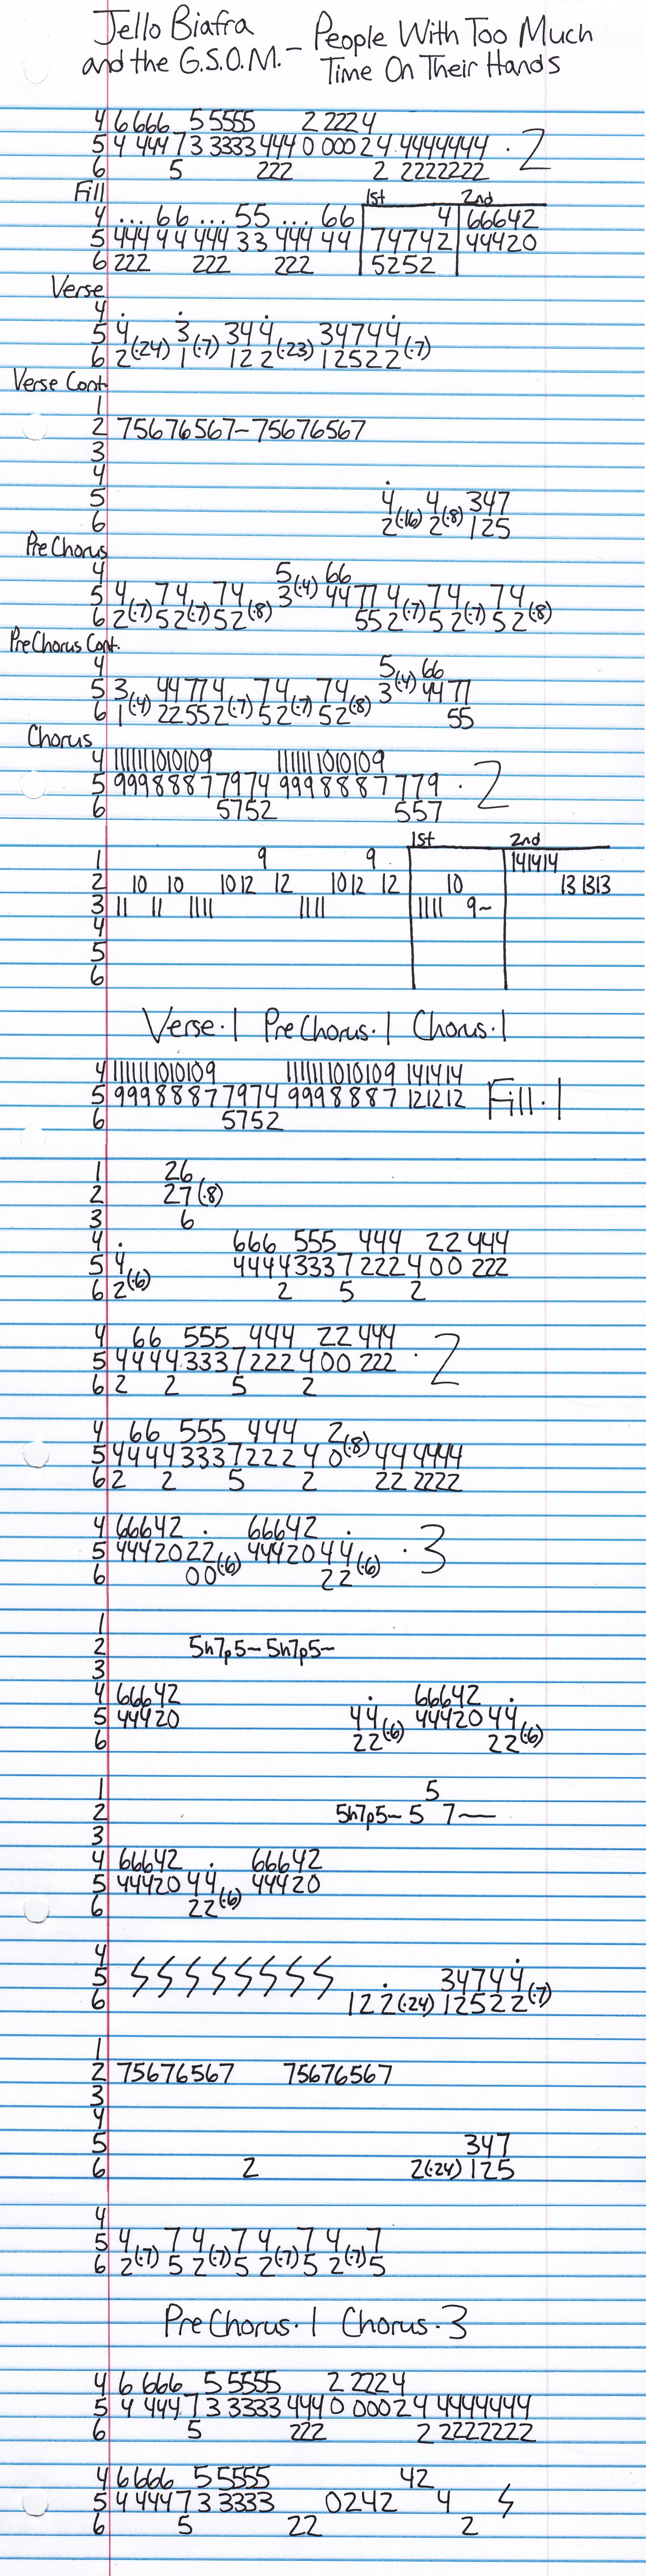 Jello Biafra
and the G.S.O.M. - People With Too Much
Time On Their Hands
4 6 666 5 5555 2 2224
5 4 444 7 3 3333 444 0 000 2 4 4444444 · 2
6 5 222 2 2222222
Fill 1st 2nd
4 ... 66 ... 55 ... 66 4 66642
5 444 44 444 33 444 44 74742 44420
6 222 222 222 5252
Verse
4 . . . .
5 4 3 34 4 34744
6 2(·24) 1(·7) 12 2(·23) 12522(·7)
Verse Cont.
1
2 75676567-75676567
3
4 .
5 4 4 347
6 2(·16) 2(·8) 125
PreChorus
4 5 66
5 4 74 74 3(·4) 44 77 4 74 74
6 2(·7) 52(·7) 52(·8) 55 2(·7) 52(·7) 52(·8)
PreChorus Cont.
4 5 66
5 3 44774 74 74 3(·4) 44 77
6 1(·4) 22552(·7) 52(·7) 52(·8) 55
Chorus
4 1111111010109 1111111010109
5 99988877974 9998887 779 · 2
6 5752 557
1st 2nd
1 9 9 141414
2 10 10 1012 12 1012 12 10 131313
3 11 11 1111 1111 1111 9~
4
5
6
Verse·1 PreChorus·1 Chorus·1
4 1111111010109 1111111010109 141414
5 99988877974 9998887 121212 Fill·1
6 5752
1 26
2 27(·8)
3 6
4 . 666 555 444 22 444
5 4 4444 333 7 222 4 00 222
6 2(·6) 2 5 2
4 66 555 444 22 444
5 4444 333 7 222 4 00 222 · 2
6 2 2 5 2
4 66 555 444 2
5 4444 333 7 222 4 0(·8) 44 4444
6 2 2 5 2 22 2222
4 66642 . 66642 .
5 44420 22 44420 44 · 3
6 00(·6) 22(·6)
1
2 5h7p5~ 5h7p5~
3
4 66642 . 66642 .
5 44420 44 44420 44
6 22(·6) 22(·6)
1 5
2 5h7p5~ 5 7~
3
4 66642 . 66642
5 44420 44 44420
6 22(·6)
4
5 34744
6 122(·24) 12522(·7)
1
2 75676567 75676567
3
4
5 347
6 2 2(·24) 125
4
5 4 7 4 7 4 7 4 7
6 2(·7) 5 2(·7) 5 2(·7) 5 2(·7) 5
PreChorus·1 Chorus·3
4 6 666 5 5555 2 2224
5 4 444 7 3 3333 444 0 000 2 4 4444444
6 5 222 2 2222222
4 6 666 5 5555 42
5 4 444 7 3 3333 0242 4
6 5 22 2